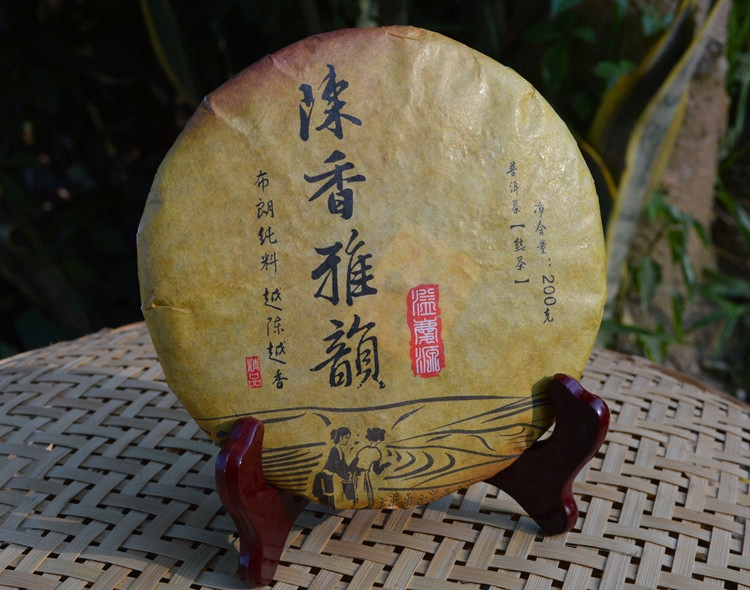 陳香雅韻
布朗純料 越陳越香
精品
溢慶源
普洱茶【熟茶】
净含量：200克